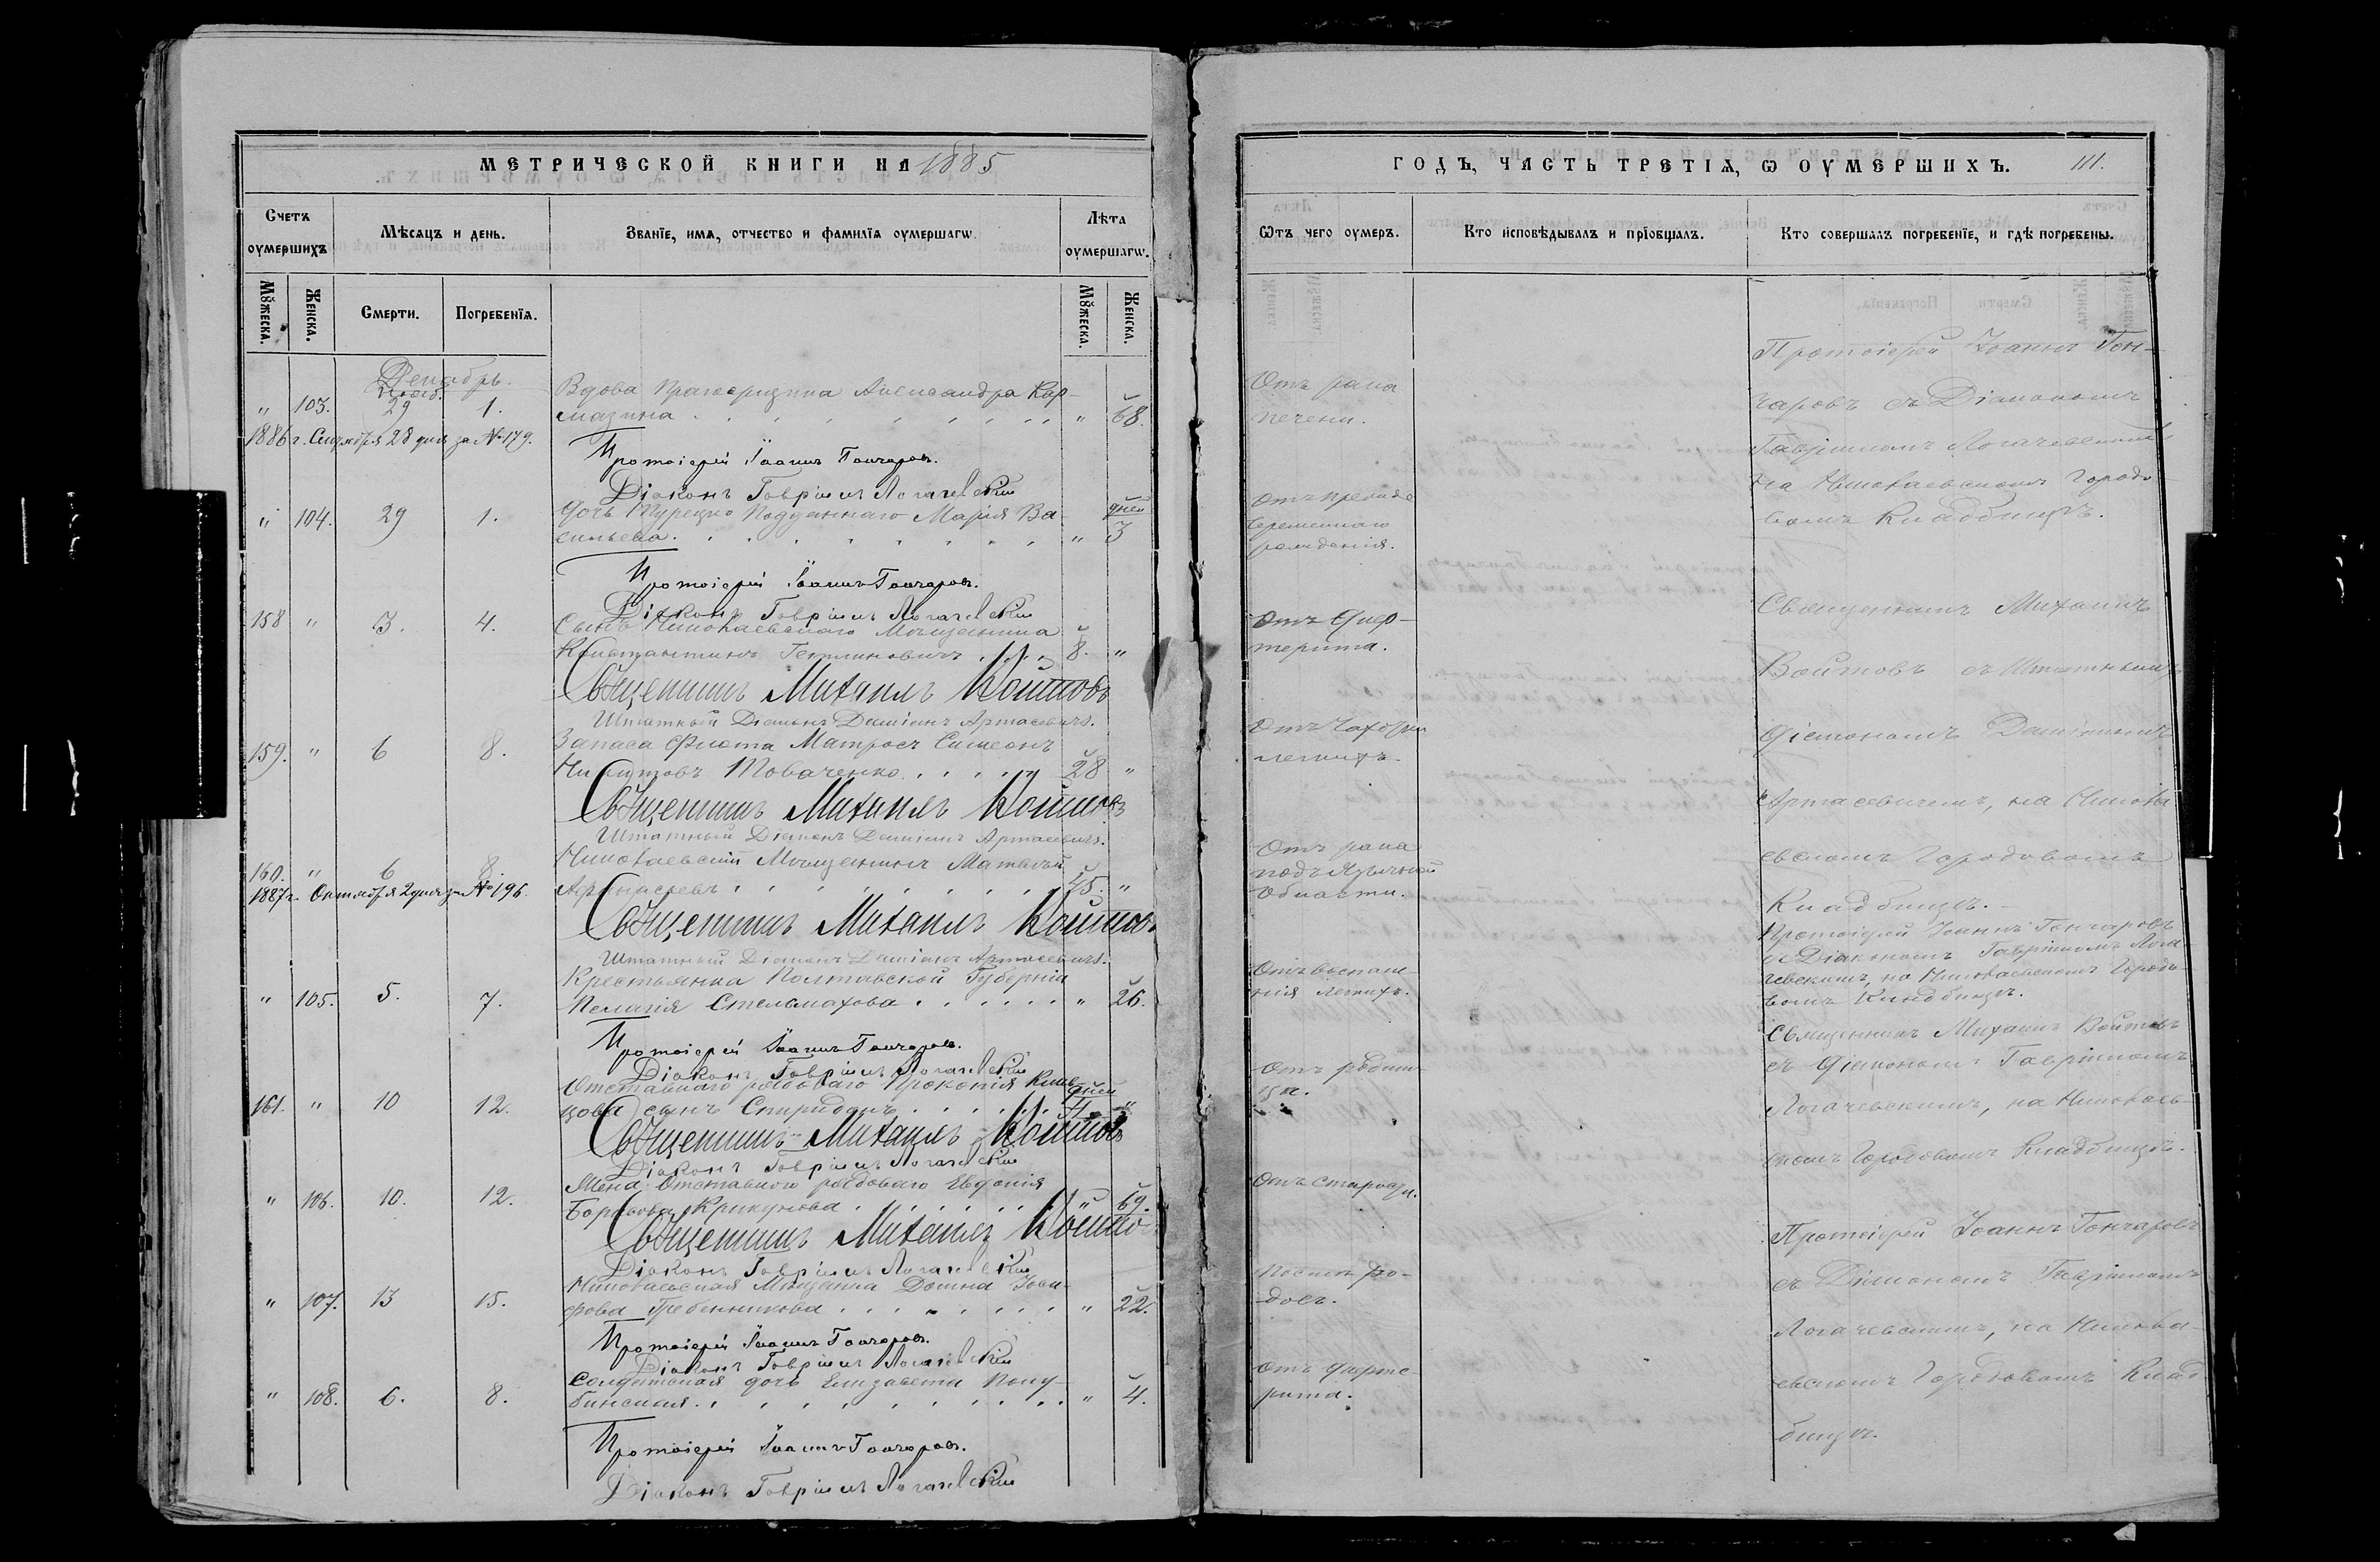 МЕТРИЧЕСКОЙ КНИГИ НА 1885
Счетъ оумершихъ
Мѣсяцъ и день.
Званїе, имя, отчество и фамилїя оумершагѡ.
Лѣта оумершагѡ.
Мꙋжеска.
Женска.
Смерти.
Погребенїя.
Мꙋжеска.
Женска.
Декабрь.
Нояб.
" 103. 29 1. Вдова Александра Кар-
мазина " 68.
1886 г. Сентября 28 дня за № 179.
Протоіерей Іоаннъ Гончаровъ.
Діаконъ Гавріилъ Логачевскій
" 104. 29 1. Дочь Турецко Подданнаго Марія Ва-
сильева " дней 3
Протоіерей Іоаннъ Гончаровъ.
Діаконъ Гавріилъ Логачевскій
158 " 3. 4. Сынъ Николаевскаго Мѣщанина
Константинъ 8. "
Священникъ Михаилъ Войтовъ
Штатный Діаконъ Даміанъ Артасевичъ.
159. " 6 8. Запаса Флота Матросъ Симеонъ
Никитовъ Товаченко 28 "
Священникъ Михаилъ Войтовъ
Штатный Діаконъ Даміанъ Артасевичъ.
160. " 6 8. Николаевскій Мѣщанинъ Матвѣй
Афанасьевъ 45. "
1887 г. Октября 2 дня за № 196.
Священникъ Михаилъ Войтовъ
Штатный Діаконъ Даміанъ Артасевичъ.
" 105. 5. 7. Крестьянка Полтавской Губерніи
Пелагія Стельмахова " 26.
Протоіерей Іоаннъ Гончаровъ.
Діаконъ Гавріилъ Логачевскій
161. " 10 12. Отставнаго рядоваго Прокопія
сынъ Спиридонъ дней "
Священникъ Михаилъ Войтовъ
Діаконъ Гавріилъ Логачевскій
" 106. 10. 12. Жена Отставного рядоваго Евдокія
Крикунова " 69.
Священникъ Михаилъ Войтовъ
Діаконъ Гавріилъ Логачевскій
" 107. 13 15. Николаевская Мѣщанка Домна
Гребенникова " 22.
Протоіерей Іоаннъ Гончаровъ.
Діаконъ Гавріилъ Логачевскій
" 108. 6. 8. Солдатская дочь Елизавета
" 4.
Протоіерей Іоаннъ Гончаровъ.
Діаконъ Гавріилъ Логачевскій
ГОДЪ, ЧАСТЬ ТРЕТІЯ, Ѡ ОУМЕРШИХЪ. 111.
Ѿтъ чего оумеръ.
Кто исповѣдывалъ и прїобщалъ.
Кто совершалъ погребенїе, и гдѣ погребены.
Отъ рака
печени.
Отъ прежде
временнаго
рожденія.
Отъ Диф-
терита.
Отъ Чахотки
легкихъ.
Отъ рака
подъязычной
области.
Отъ воспале-
нія легкихъ.
Отъ родим-
ца.
Отъ старости.
Послѣ ро-
довъ.
Отъ дифте-
рита.
Протоіерей Іоаннъ Гон-
чаровъ съ Діакономъ
Гавріиломъ Логачевскимъ
на Николаевскомъ Городо-
вомъ Кладбищѣ.
Священникъ Михаилъ
Войтовъ съ Штатнымъ
Діакономъ Даміаномъ
Артасевичемъ, на Никола
евскомъ Городовомъ
Кладбищѣ.
Протоіерей Іоаннъ Гончаровъ
съ Діакономъ Гавріиломъ Лога
чевскимъ, на Николаевскомъ Городо-
вомъ Кладбищѣ.
Священникъ Михаилъ Войтовъ
съ Діакономъ Гавріиломъ
Логачевскимъ, на Николаев-
скомъ Городовомъ Кладбищѣ.
Протоіерей Іоаннъ Гончаровъ
съ Діакономъ Гавріиломъ
Логачевскимъ, на Никола-
евскомъ Городовомъ Клад
бищѣ.